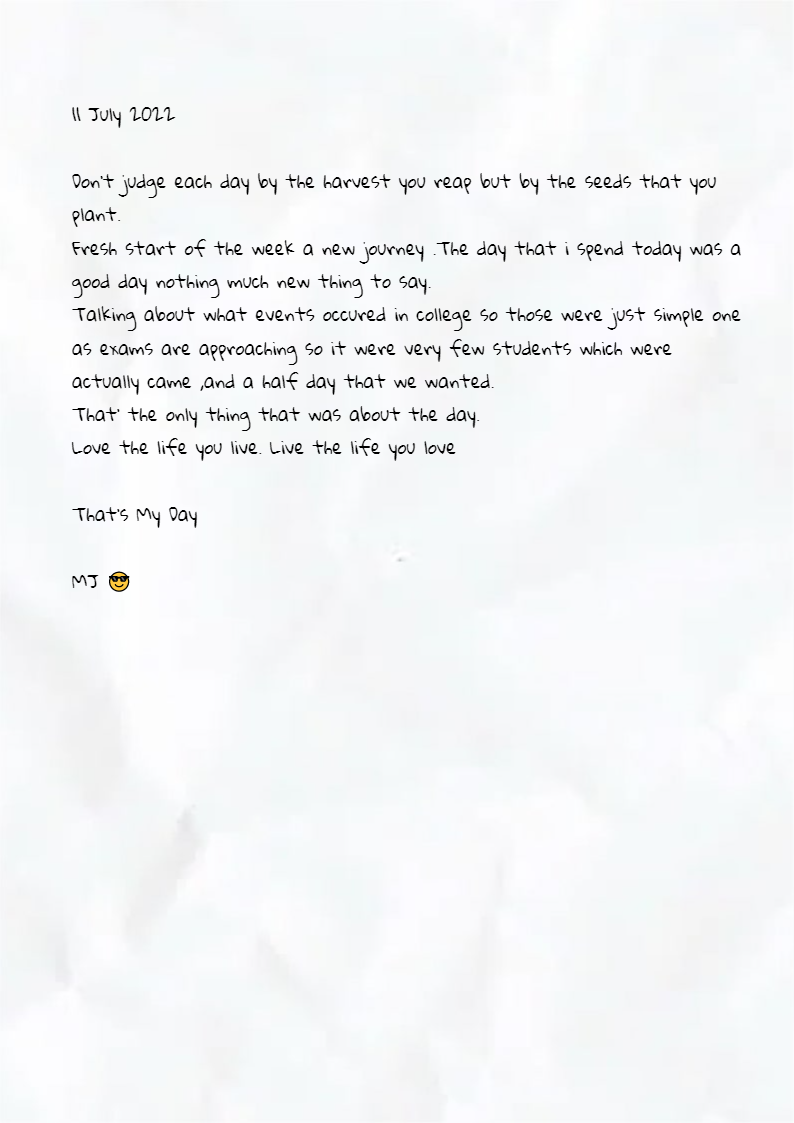 11 July 2022
Don't judge each day by the harvest you reap but by the seeds that you
plant.
Fresh start of the week a new journey .The day that i spend today was a
good day nothing much new thing to say.
Talking about what events occured in college so those were just simple one
as exams are approaching so it were very few students which were
actually came ,and a half day that we wanted.
That' the only thing that was about the day.
Love the life you live. Live the life you love
That's My Day
MJ 😎